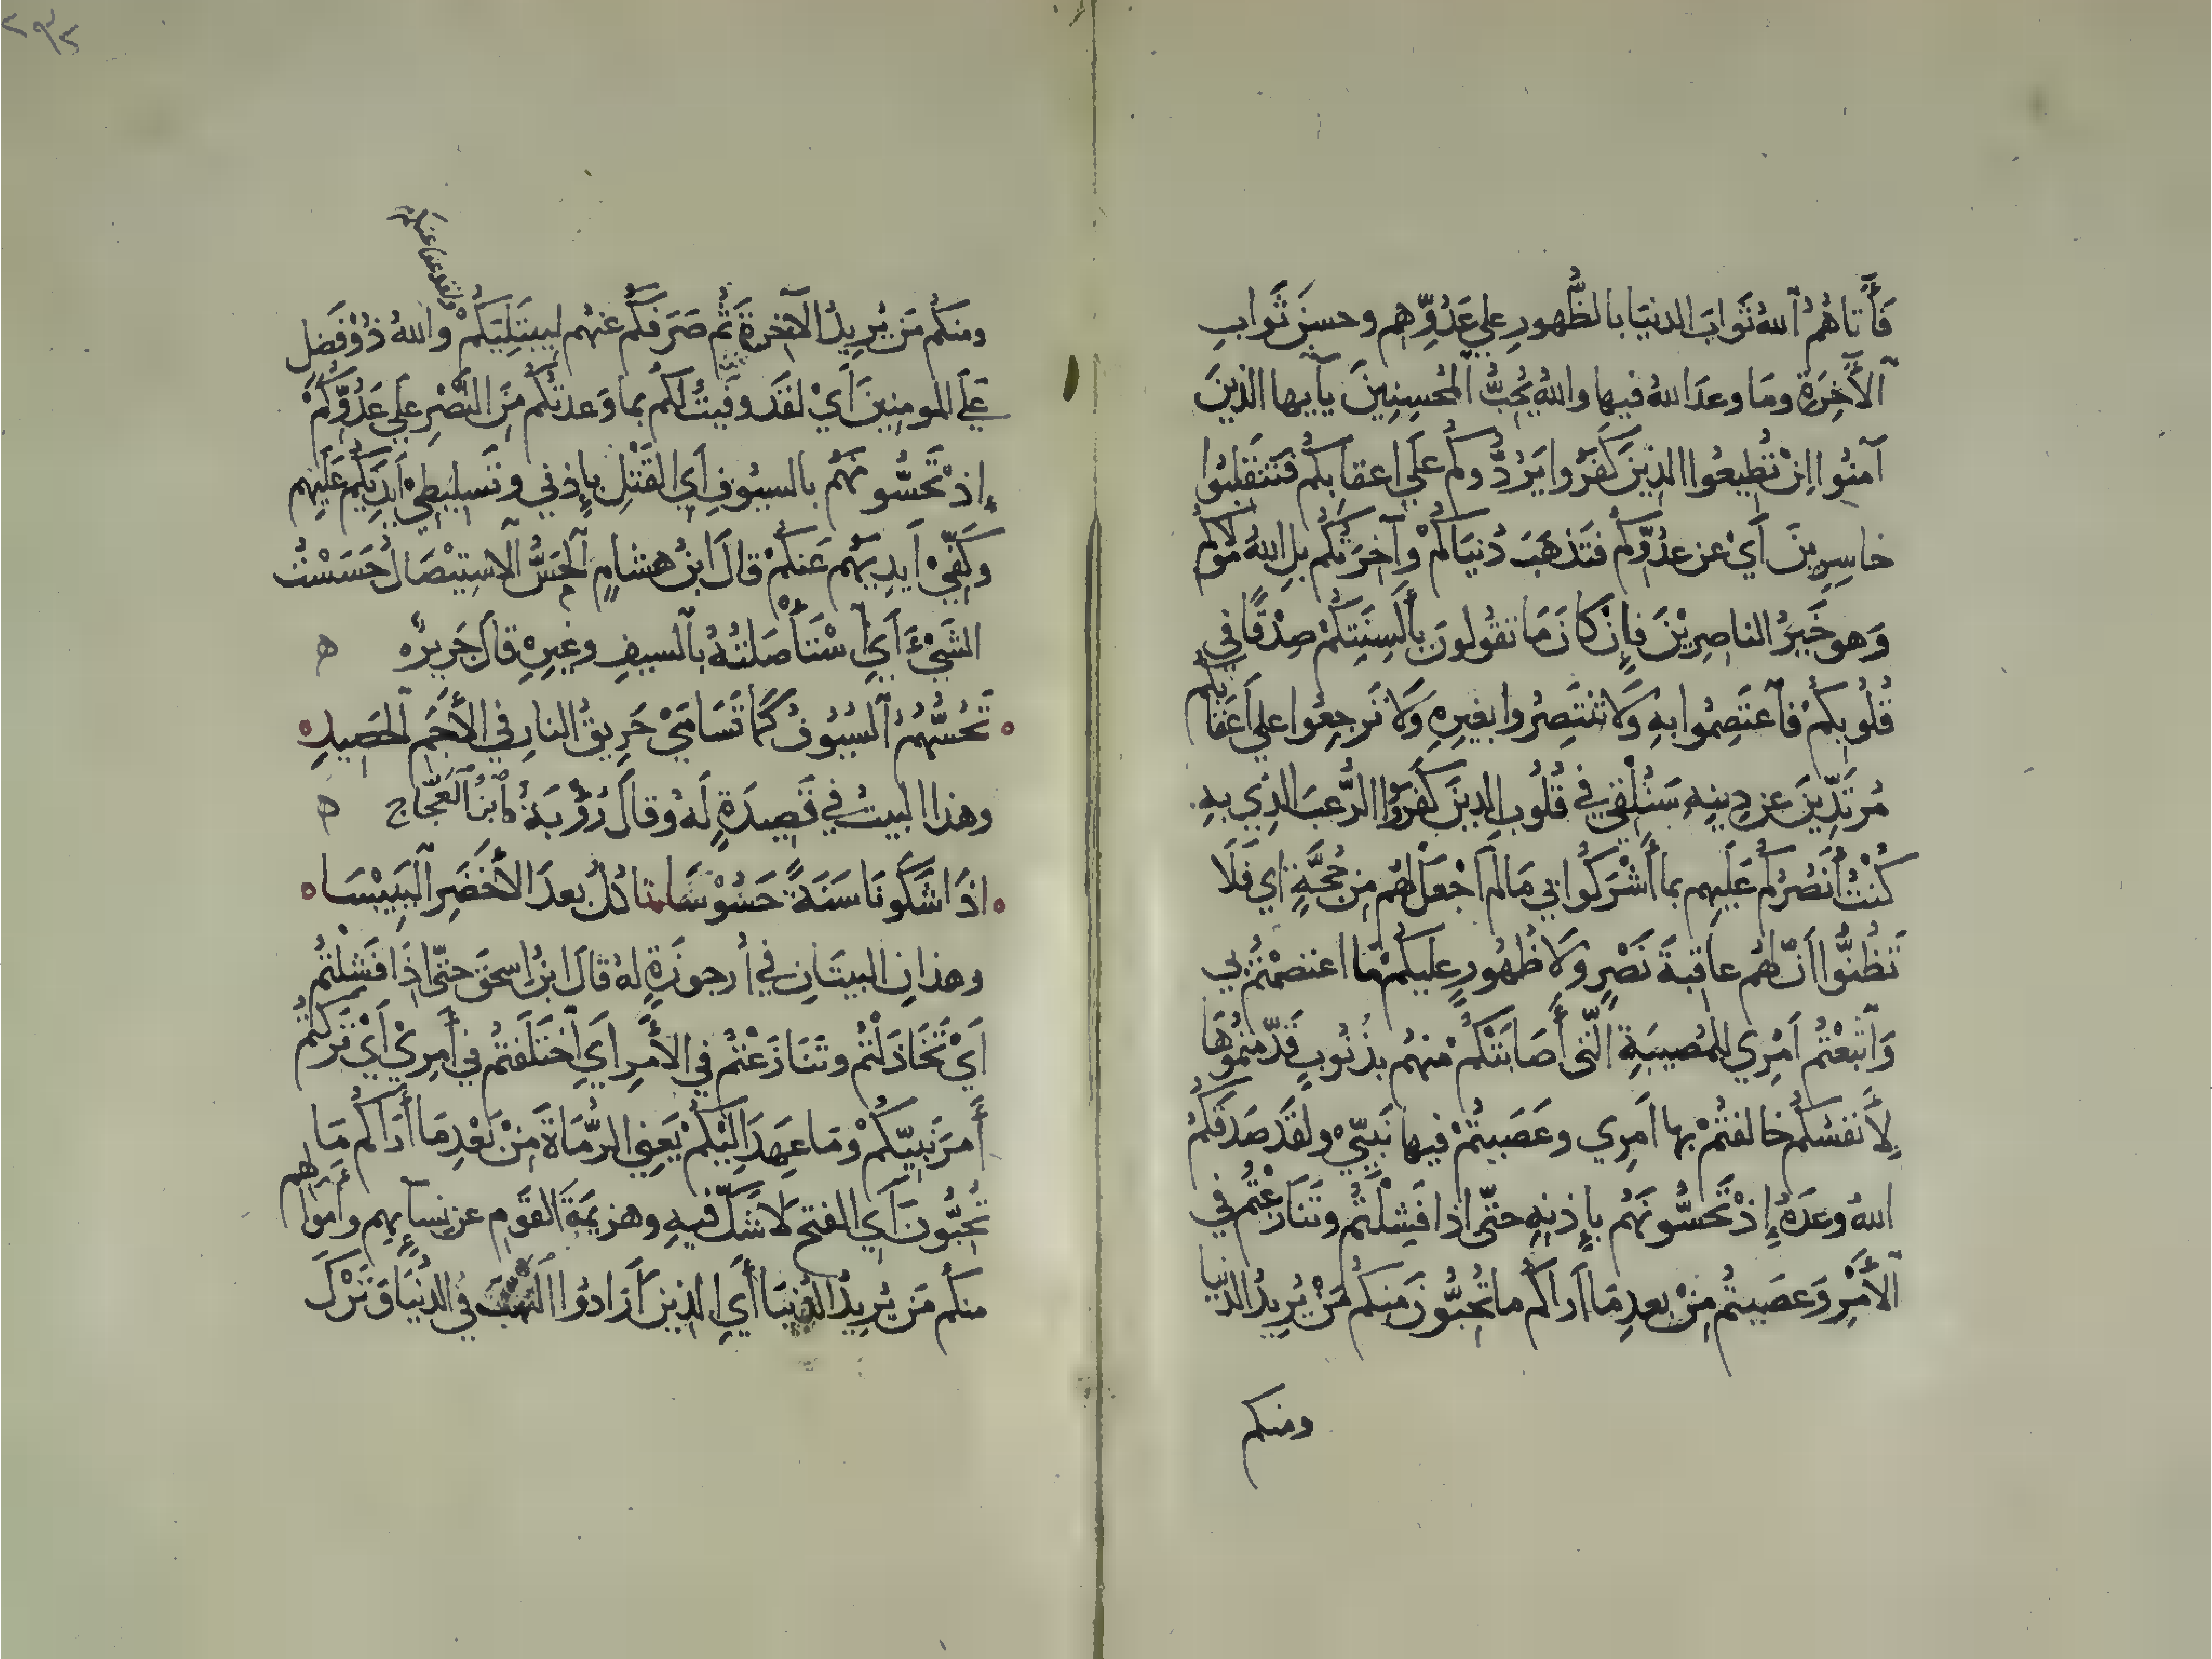 فَأَتَاهُمُ ٱللهُ ثَوَابَ الدنيَا بالظُّهورِ علي عَدُوِّهِم وحسنَ ثَوابِ
ٱلأَخِرَةِ ومَا وعدَ اللهُ فيها واللهُ يُحِبُّ ٱلمُحسِنِينَ يآيها الذينَ
آمنُوا اِنْ تُطيعُوا الذينَ كَفَرُوا يَرُدُّوكُم علَي اعقابِكُم فَتَنْقَلِبُوا
خاسِرِينَ اَيْ عن عدُوِّكُم فتَذهَبَ دُنيَاكُمْ وآخِرَتُكُم بلِ اللهُ مَولاكُم
وَهو خَيرُ الناصِرِيْنَ فَإِنْ كانَ مَا تقُولونَ بِأَلسِنَتِكُمْ صِدْقًا في
قُلُوبِكُمْ فَٱعتَصِمُوا بهِ وَلَا تَنْتَصِرُوا بغيرِهِ وَلَا تَرجِعُوا علي أَعقَابِكُم
مُرتَدِّينَ عن دِينِهِ سَنُلْقِي في قُلُوبِ الذِينَ كَفَرُوا الرُّعبَ الذِي بهِ
كُنتُ أَنصُرُكُم عَلَيهِم بما أَشْرَكُوا بِي مَالَم اَجْعَلْ لَهُم مِن حُجَّةٍ اي فَلَا
تَظُنُّوا أَنَّ لهُم عاقِبَةَ نَصْرٍ وَلَا ظُهورٍ عليكُمْ مَا اعتصمْتُم بي
وَٱتَّبَعْتُم اَمْرِي للمُصيبَةِ ٱلَّتي أَصَابَتْكُمْ منهُم بذُنُوبٍ قَدَّمتُموُهَا
لِأَنفسِكُم خالفتُمْ بها اَمرِي وعَصَيتُمْ فيها نَبيِّيْ ولقَد صَدَقَكُمُ
اللهُ وعدَهُ إِذْ تَحُسُّونَهُم بإِذنِهِ حتّي اذا فَشِلْتُم وتَنَازَعْتُم في
ٱلأَمْرِ وَعَصَيتُم مِنْ بعدِ مَا اَراكُم ما تُحِبُّونَ مِنكُم مَنْ يُرِيدُ الدُّنيا
ومنكم
٢٩٢
ولقد عفا عنكم
ومنكُم مَن يُرِيدُ الآخرةَ ثُم صَرَفَكُم عنهُم لِيبتَلِيَكُمْ واللهُ ذُوْ فَضلٍ
عَلَي المومنِينَ اَيْ لقَد وفَيتُ لكُم بما وَعدتُكُم مِنَ النَّصْرِ علي عَدُوِّكُمْ
إِذْ تَحُسُّونَهُم بالسيُوفِ اَيِ القَتْلِ بإِذنِي وتَسلِيطِيْ اَيدِيَكُم عَلَيهِم
وَكَفِّيْ اَيدِيَهُم عَنكُمْ قالَ ابنُ هشامٍ ٱلحَسُّ ٱلاستِيْصَالُ حَسَسْتُ
الشَيْءَ اَيِ ٱسْتَأْصَلتُهُ بٱلسيفِ وغيرِهِ قالَ جَرِيرٌ ه
تَحُسُّهُمُ ٱلسُيُوفُ كَمَا تَسَامَيْ حَرِيقُ النارِ في الأَجَمِ ٱلحَصِيدِ
وهذا البيتُ في قَصِيدَةٍ لَهُ وقالَ رُؤْبَةُ ٱبنُ ٱلعَجّاج ه
اذَا شَكَونَا سَنَةً حَسُوْسَا تاكُلُ بعدَ الأَخْضَرِ ٱليَبِيْسَا
وهذانِ البيتَانِ في أُرجوزَةٍ لهُ قالَ ابنُ اسحقَ حتّي اذَا فَشِلْتُم
اَيْ تَخَاذَلْتُم وتَنَازَعْتُم في الأَمرِ اَيِ ٱختَلَفتُم في أَمرِيْ اَيْ تَرَكتُم
أَمرَ نَبِيِّكُمْ ومَا عَهِدَ اِلَيْكُمْ يَعنِي الرُّمَاةَ مِنْ بَعْدِ مَا أَرَاكُم مَا
تُحِبُّونَ اَيِ الفتحَ لَا شَكَّ فيهِ وهزيمَةَ القَومِ عن نِسآيِهِم وأَموالهم
منكُم مَن يُرِيدُ الدُنيَا أَيِ الذينَ اَرَادوُا النَهبَ في الدُنيَا وَتَرْكَ